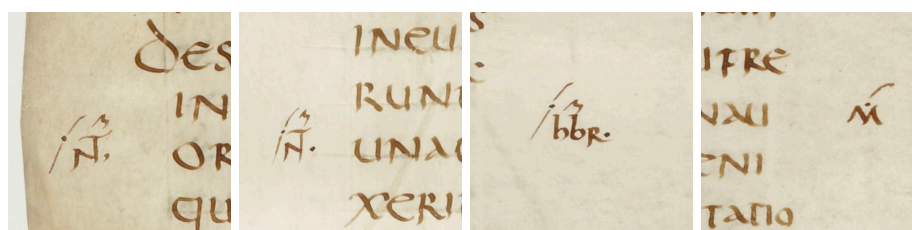 DES
IN
N̄.
OR
QU
INEU
N̄.
RUN
UNA
XERI
bbR.
IFRE
M
NAU
ENI
TATIO